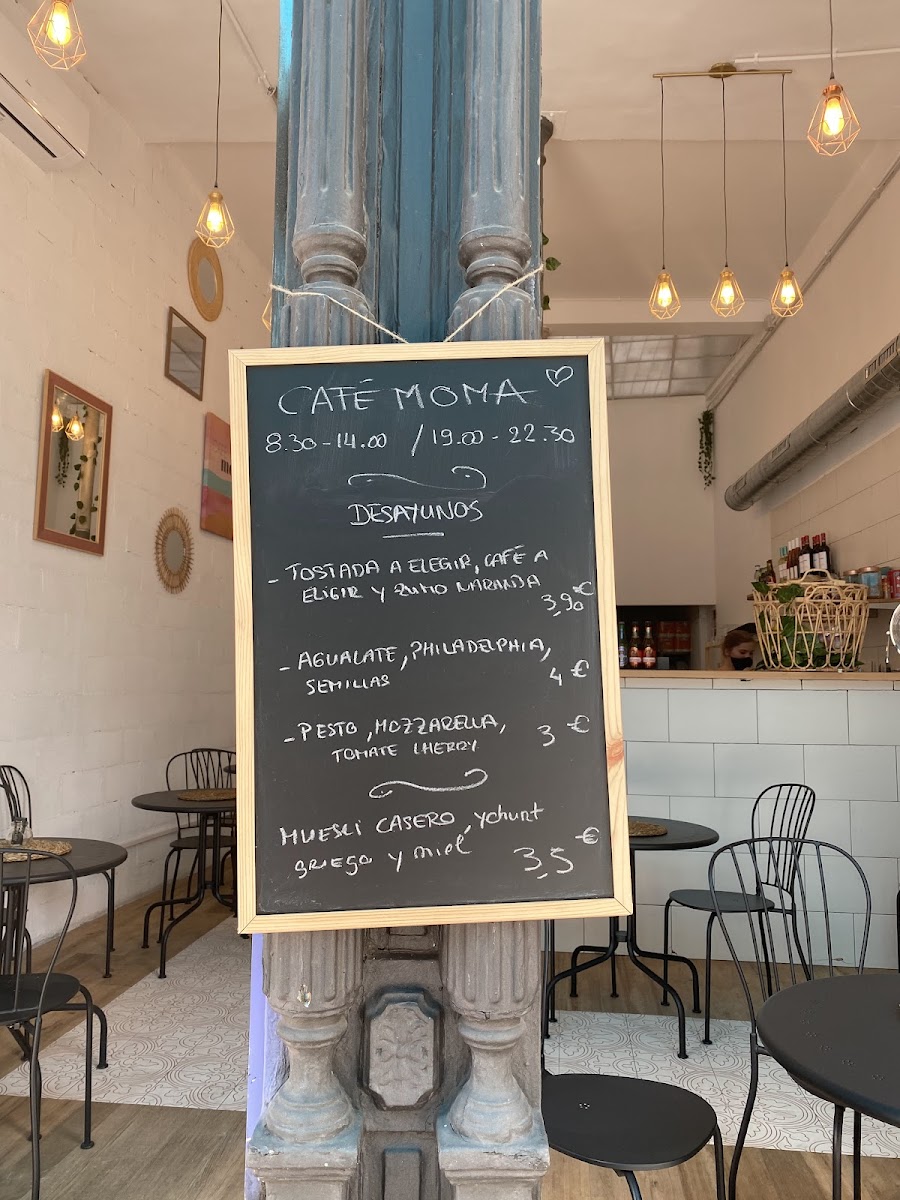 CAFÉ MOMA
8.30-14.00 / 19.00-22.30
DESAYUNOS
- TOSTADA A ELEGIR, CAFÉ A
ELIGIR Y ZUMO NARANDA
3,90€
- AGUALATE, PHILADELPHIA,
SEMILLAS
4€
- PESTO, MOZZARELLA,
TOMATE CHERRY
3€
MUESLI CASERO, YChurt
griego y miel
3,5€